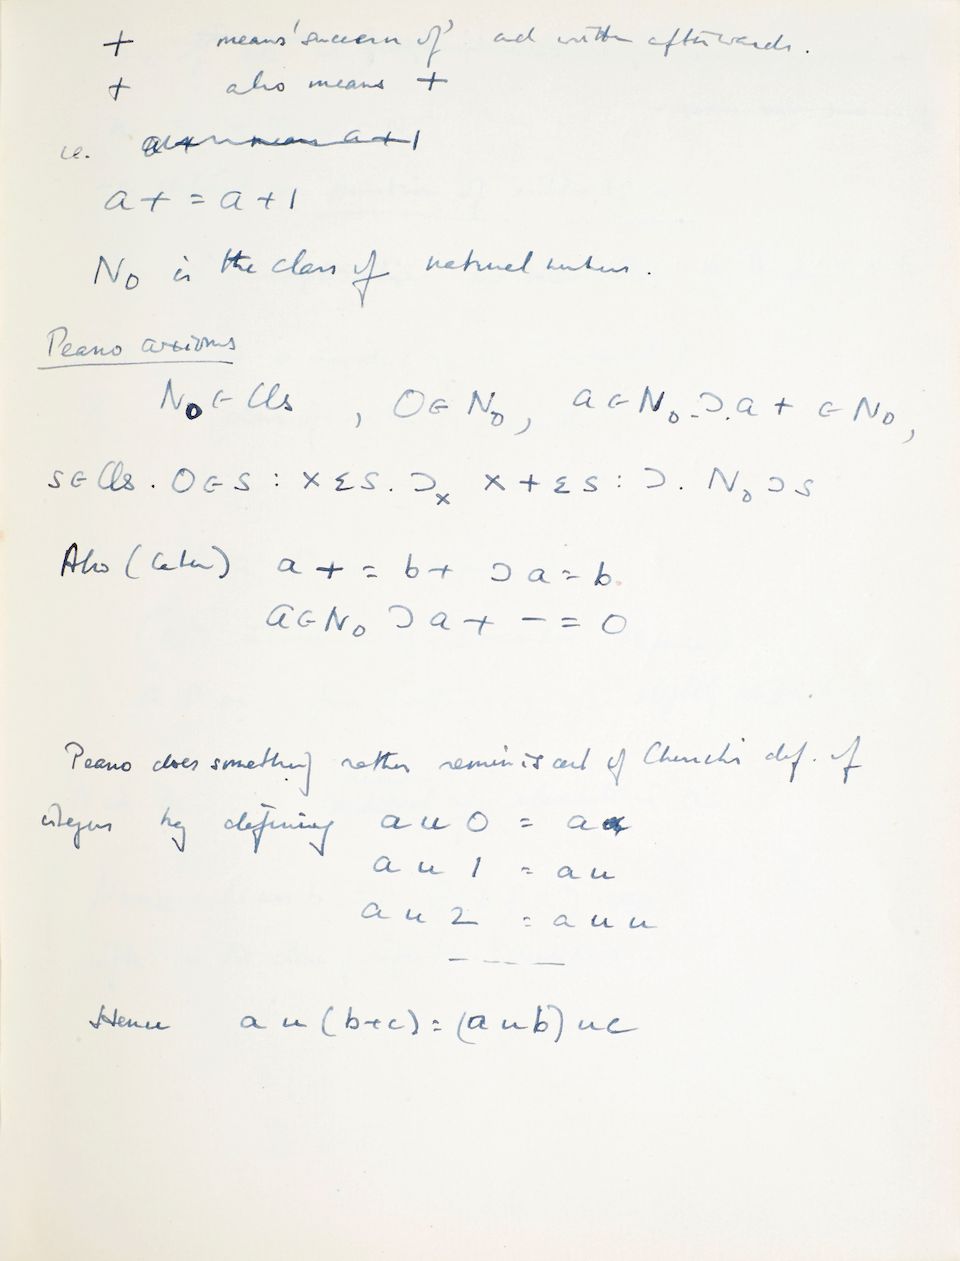 + means 'successor of' and written afterwards.
+ also means +
i.e. a+ means a+1
a+ = a+1
N₀ is the class of natural numbers.
Peano axioms
N₀ ϵ Cls , 0 ϵ N₀, a ϵ N₀ .Ɔ. a + ϵ N₀,
s ϵ Cls . 0 ϵ s : x ε s . Ɔₓ x + ε s : Ɔ . N₀ Ɔ s
Also (later) a + = b + Ɔ a = b.
a ϵ N₀ Ɔ a + - = 0
Peano does something rather reminiscent of Church's def. of
integers by defining a u 0 = a
a u 1 = a u
a u 2 = a u u
- -- —
Hence a u (b+c) = (a u b) u c